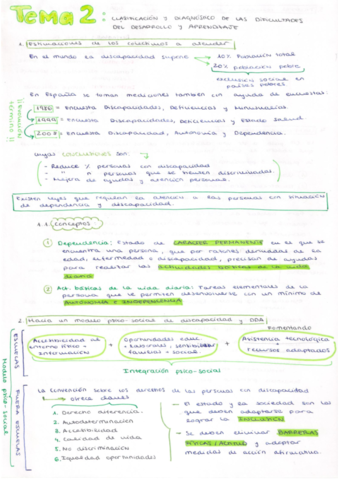 Tema 2: CLASIFICACIÓN Y DIAGNÓSTICO DE LAS DIFICULTADES
DEL DESARROLLO Y APRENDIZAJE
1. Estimaciones de los colectivos a atender
En el mundo la discapacidad supone → 10% Población total
20% población pobre
exclusión social en
países pobres
En España se toman mediciones también con ayuda de encuestas.
1986 = Encuesta Discapacidades, Deficiencias y Minusvalías
1999 = Encuesta Discapacidades, Deficiencias y Estado Salud.
2008 = Encuesta Discapacidad, Autonomía y Dependencia.
son:
- Reduce % personas con discapacidad
- " " personas que se
- Mejora de ayudas y atención personas.
Existen leyes que regulan la atención a las personas con situación
de dependencia y discapacidad.
1.1. Conceptos
① Dependencia: Estado de CARÁCTER PERMANENTE en el que se
encuentra una persona, que por razones derivadas de la
edad, enfermedad o discapacidad, precisan de ayudas
para realizar las actividades básicas de la vida
diaria
② Act. básicas de la vida diaria: Tareas elementales de la
persona que le permiten desenvolverse con un mínimo de
AUTONOMÍA E INDEPENDENCIA
2. Hacia un modelo psico-social de discapacidad y DDA
Fomentando
Accesibilidad al entorno físico + información
+
Oportunidades
familiar - social
+
Asistencia tecnológica
recursos adaptados
Integración psico-social
Modelo psico-social
La Convención sobre los derechos de las personas con discapacidad
otorga claves
1. Derecho diferencia
2. Autodeterminación
3. Accesibilidad
4. Calidad de vida
5. No discriminación
6. Igualdad oportunidades
- El estado y la sociedad son los
que deben adaptarse para
lograr la INCLUSIÓN
- Se deben eliminar BARRERAS
FÍSICAS/ y adoptar
medidas de acción